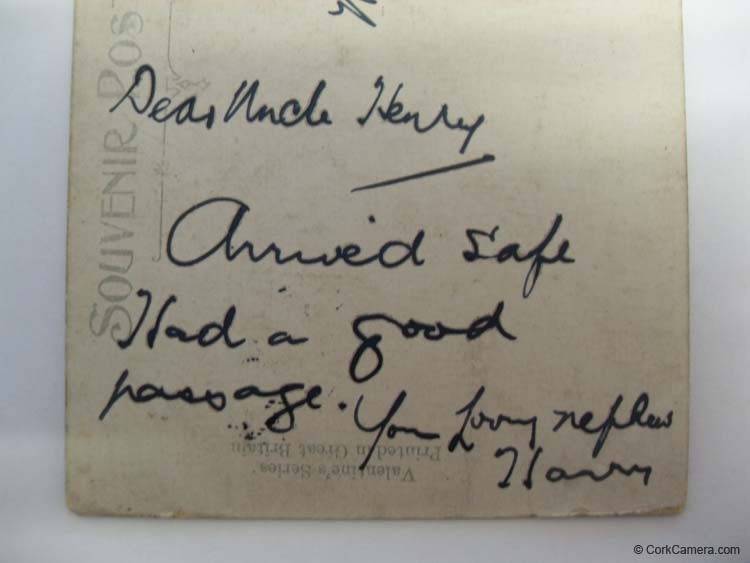 SOUVENIR POS
Dear Uncle Henry
Arrived safe
Had a good
passage. Your Loving nephew
Harry
Valentine's Series
Printed in Great Britain
© CorkCamera.com